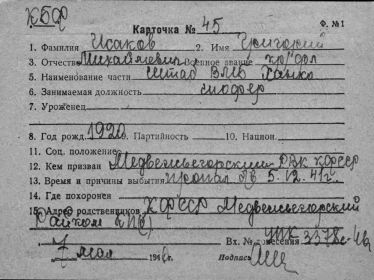 КБФ
Карточка № 45 Ф. №1
1. Фамилия Исаков 2. Имя Григорий
3. Отчество Михайлович Военное звание кр/фл
5. Наименование части штаб ВМБ Ханко
6. Занимаемая должность шофер
7. Уроженец
8. Год рожд. 1920 9. Партийность 10. Национ.
11. Соц. положение
12. Кем призван Медвежьегорский РВК КФССР
13. Время и причины выбытия пропал б/в 5.12.41г.
14. Где похоронен
15. Адрес родственников КФССР Медвежьегорский
Райком
7 мая 194 г. Вх. № донесения УПК 3378с
Подпись